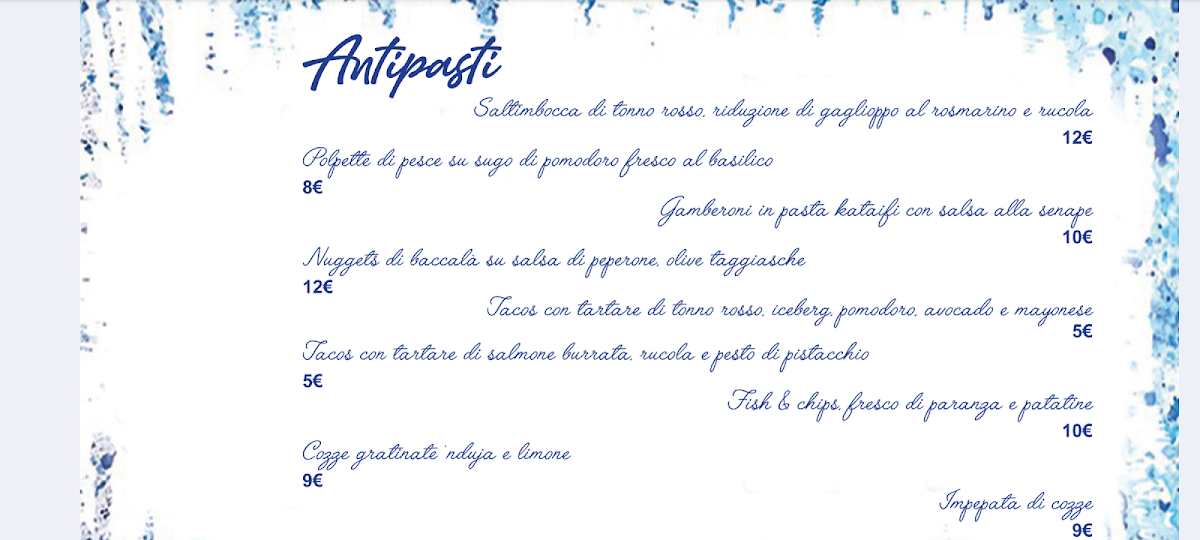 Antipasti
Saltimbocca di tonno rosso, riduzione di gaglioppo al rosmarino e rucola
12€
Polpette di pesce su sugo di pomodoro fresco al basilico
8€
Gamberoni in pasta kataifi con salsa alla senape
10€
Nuggets di baccalà su salsa di peperone, olive taggiasche
12€
Tacos con tartare di tonno rosso, iceberg, pomodoro, avocado e mayonese
5€
Tacos con tartare di salmone burrata, rucola e pesto di pistacchio
5€
Fish & chips, fresco di paranza e patatine
10€
Cozze gratinate 'nduja e limone
9€
Impepata di cozze
9€